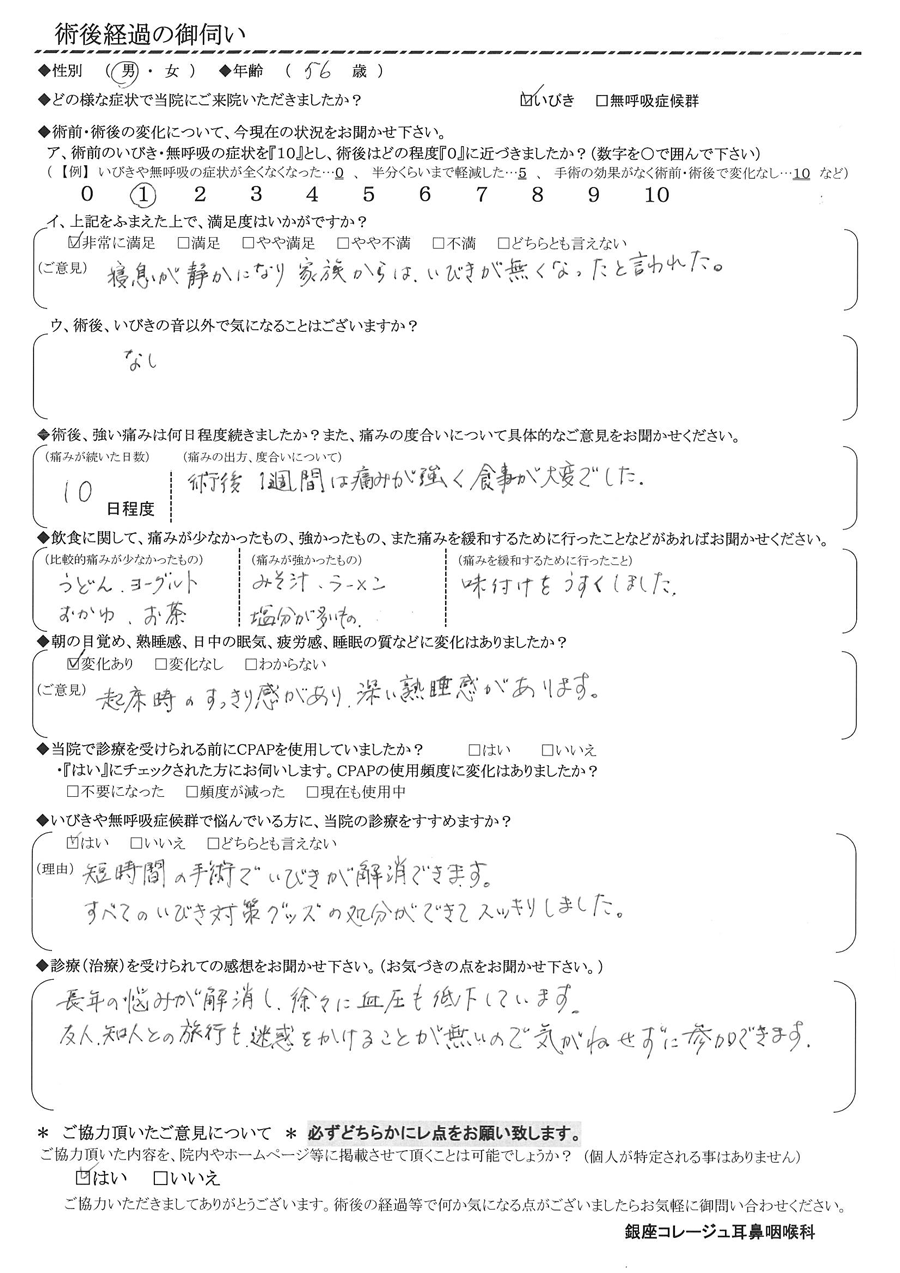 術後経過の御伺い
◆性別 （ 男 ・ 女 ） ◆年齢 （ 56 歳 ）
◆どの様な症状で当院にご来院いただきましたか？ ☑いびき □無呼吸症候群
◆術前・術後の変化について、今現在の状況をお聞かせ下さい。
ア、術前のいびき・無呼吸の症状を『10』とし、術後はどの程度『0』に近づきましたか？（数字を○で囲んで下さい）
（ 【例】 いびきや無呼吸の症状が全くなくなった…0 、 半分くらいまで軽減した…5 、 手術の効果がなく術前・術後で変化なし…10 など）
0 1 2 3 4 5 6 7 8 9 10
イ、上記をふまえた上で、満足度はいかがですか？
☑非常に満足 □満足 □やや満足 □やや不満 □不満 □どちらとも言えない
（ご意見） 寝息が静かになり家族からは、いびきが無くなったと言われた。
ウ、術後、いびきの音以外で気になることはございますか？
なし
◆術後、強い痛みは何日程度続きましたか？また、痛みの度合いについて具体的なご意見をお聞かせください。
（痛みが続いた日数） （痛みの出方、度合いについて）
10 日程度 術後1週間は痛みが強く食事が大変でした.
◆飲食に関して、痛みが少なかったもの、強かったもの、また痛みを緩和するために行ったことなどがあればお聞かせください。
（比較的痛みが少なかったもの） （痛みが強かったもの） （痛みを緩和するために行ったこと）
うどん、ヨーグルト みそ汁、ラーメン 味付けをうすくしました.
おかゆ、お茶 塩分が多いもの.
◆朝の目覚め、熟睡感、日中の眠気、疲労感、睡眠の質などに変化はありましたか？
☑変化あり □変化なし □わからない
（ご意見） 起床時のすっきり感があり、深い熟睡感があります。
◆当院で診療を受けられる前にCPAPを使用していましたか？ □はい □いいえ
・『はい』にチェックされた方にお伺いします。CPAPの使用頻度に変化はありましたか？
□不要になった □頻度が減った □現在も使用中
◆いびきや無呼吸症候群で悩んでいる方に、当院の診療をすすめますか？
☑はい □いいえ □どちらとも言えない
（理由） 短時間の手術でいびきが解消できます。
すべてのいびき対策グッズの処分ができてスッキリしました。
◆診療（治療）を受けられての感想をお聞かせ下さい。（お気づきの点をお聞かせ下さい。）
長年の悩みが解消し、徐々に血圧も低下しています。
友人、知人との旅行も、迷惑をかけることが無いので気がねせずに参加できます.
＊ ご協力頂いたご意見について ＊ 必ずどちらかにレ点をお願い致します。
ご協力頂いた内容を、院内やホームページ等に掲載させて頂くことは可能でしょうか？ （個人が特定される事はありません）
☑はい □いいえ
ご協力いただきましてありがとうございます。術後の経過等で何か気になる点がございましたらお気軽に御問い合わせください。
銀座コレージュ耳鼻咽喉科